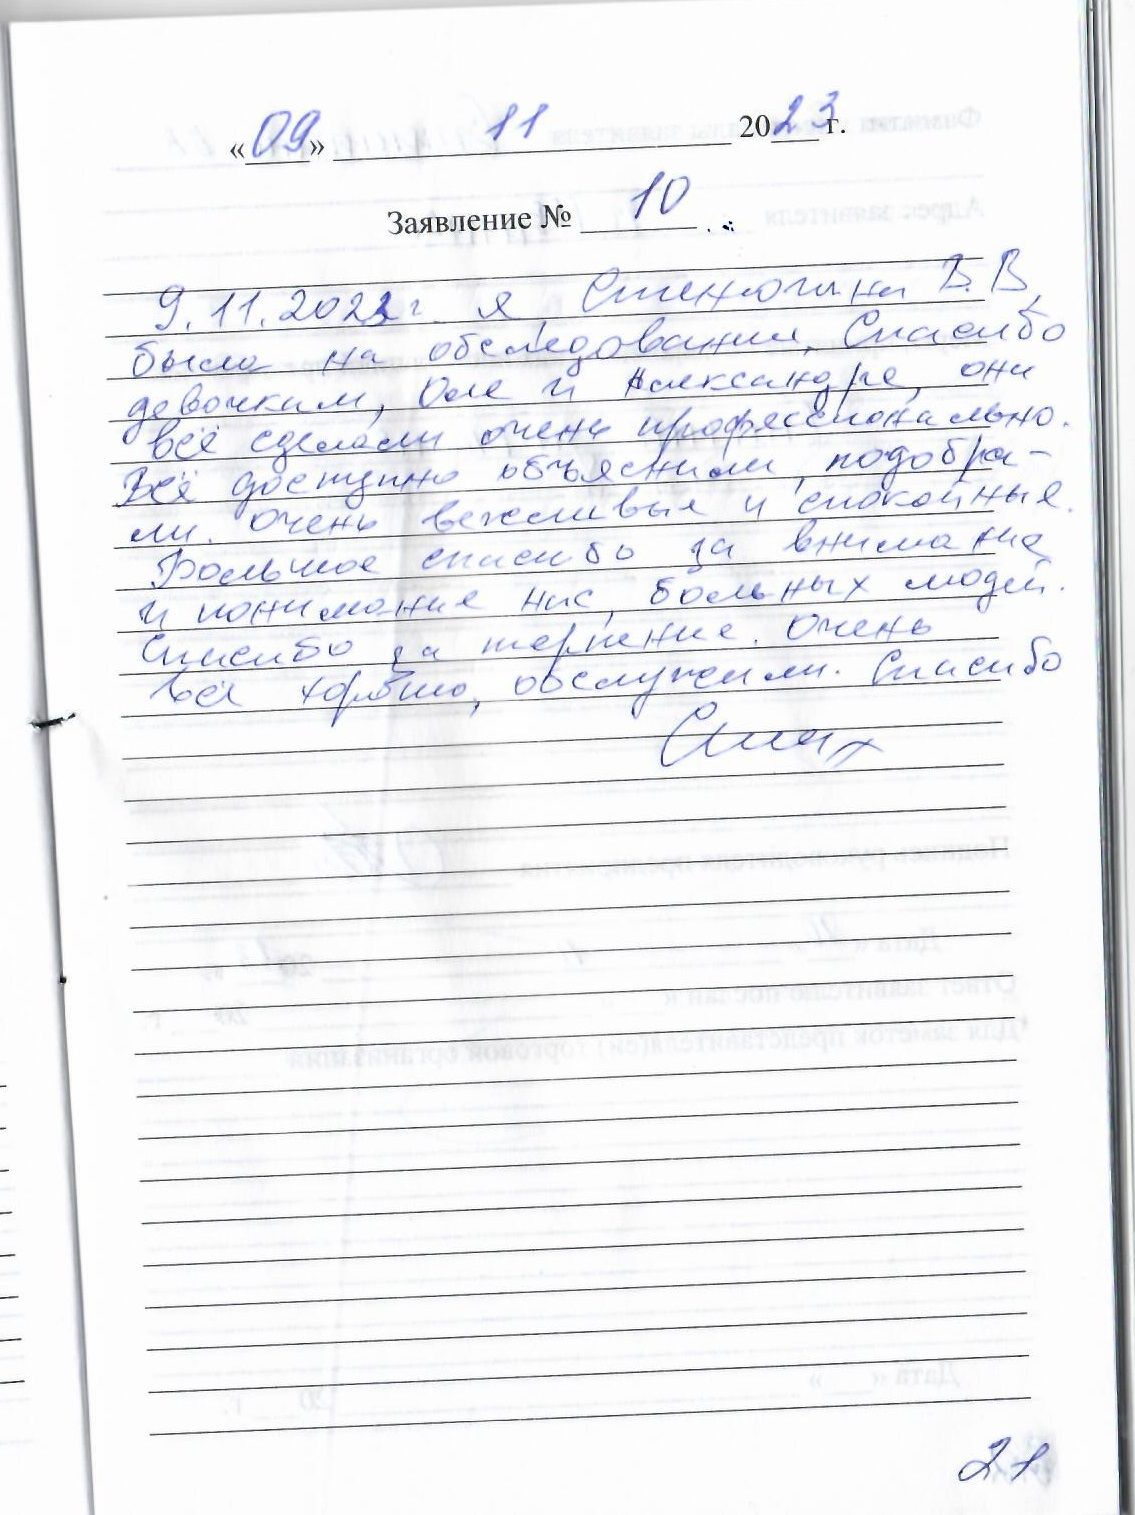 «09» 11 2023 г.
Заявление № 10
9.11.2023 г. я В.В.
была на обследовании, Спасибо
девочкам, Оле и Александре, они
всё сделали очень профессионально.
Всё доступно объяснили, подобра-
ли. очень вежливые и спокойные.
Большое спасибо за внимание
и понимание нас, больных людей.
Спасибо за терпение. Очень
всё хорошо, обслужили. Спасибо
21